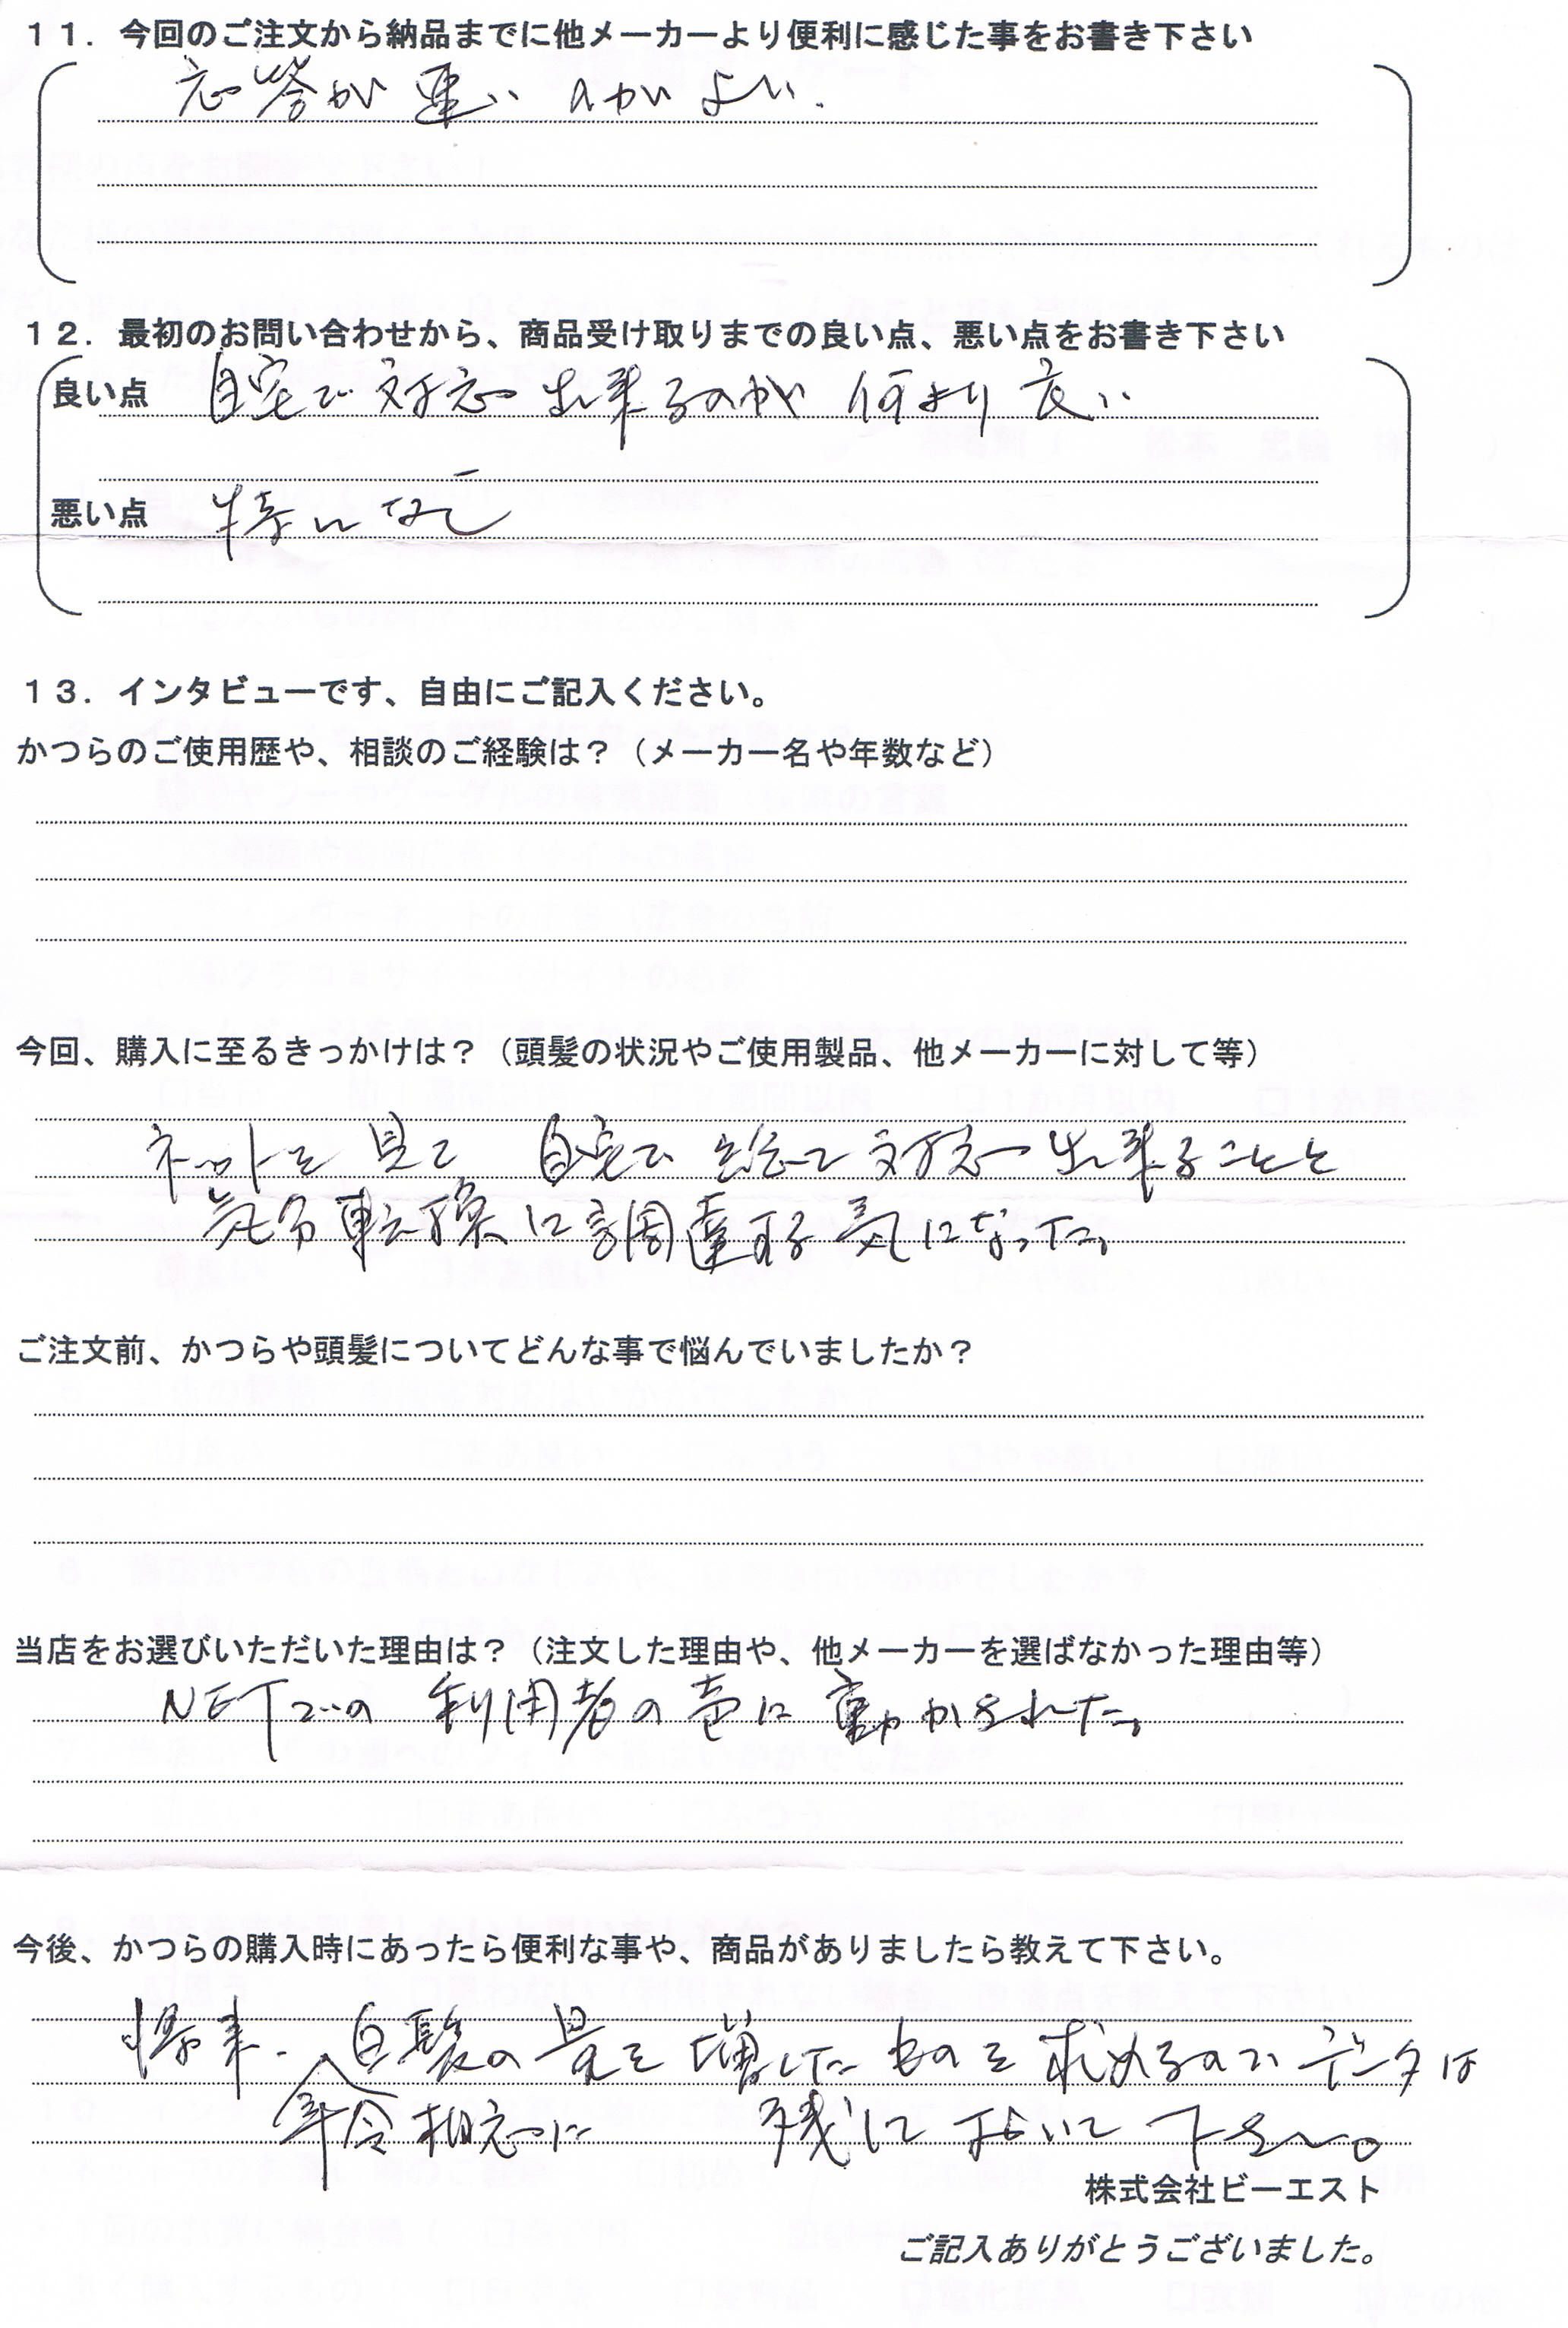 11. 今回のご注文から納品までに他メーカーより便利に感じた事をお書き下さい
応答が速いのがよい.
12. 最初のお問い合わせから、商品受け取りまでの良い点、悪い点をお書き下さい
良い点 自宅で対応出来るのが何より良い
悪い点 特になし
13. インタビューです、自由にご記入ください。
かつらのご使用歴や、相談のご経験は?(メーカー名や年数など)
今回、購入に至るきっかけは?(頭髪の状況やご使用製品、他メーカーに対して等)
ネットを見て 自宅で総て対応出来ることと
気分転換に調達する気になった。
ご注文前、かつらや頭髪についてどんな事で悩んでいましたか?
当店をお選びいただいた理由は?(注文した理由や、他メーカーを選ばなかった理由等)
NETでの利用者の声に動かされた。
今後、かつらの購入時にあったら便利な事や、商品がありましたら教えて下さい。
将来、白髪の量を増したものを求めるのでデータは
年令相応に 残しておいて下さい。
株式会社ビーエスト
ご記入ありがとうございました。